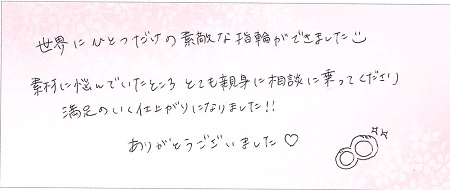 世界にひとつだけの素敵な指輪ができました
素材に悩んでいたところ とても親身に相談に乗ってください
満足のいく仕上がりになりました!!
ありがとうございました♡